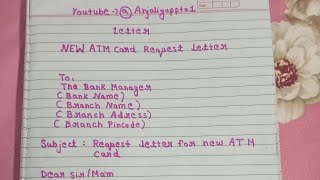 Youtube → @ Anjaliguppta1
Letter
NEW ATM Card Request Letter
To,
The Bank Manager
( Bank Name)
( Branch Name)
( Branch Adress)
( Branch Pincode)
Subject : Request letter for new ATM
Card
Dear Sir/Mam